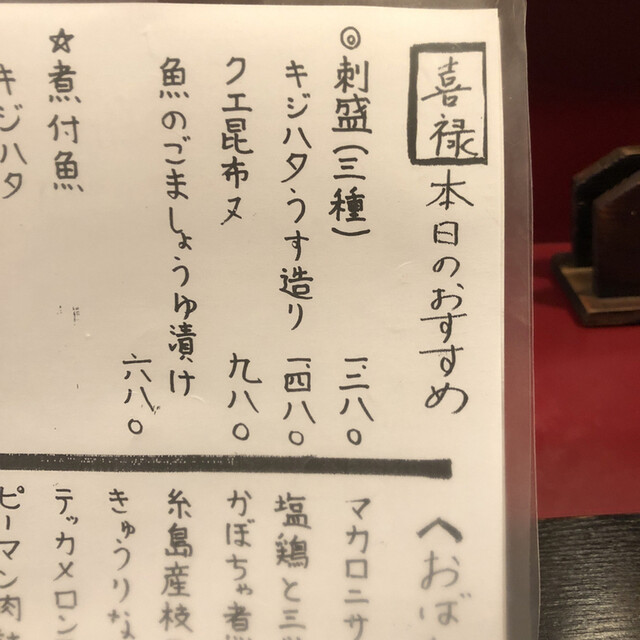 喜禄 本日のおすすめ
◎刺盛(三種) 一、三八〇
キジハタうす造り 一、四八〇
クエ昆布〆 九八〇
魚のごましょうゆ漬け 六八〇
☆煮付魚
キジハタ
へおば
マカロニサ
塩鶏と三
かぼちゃ煮
糸島産枝
きゅうりな
テッカメロン
ピーマン肉